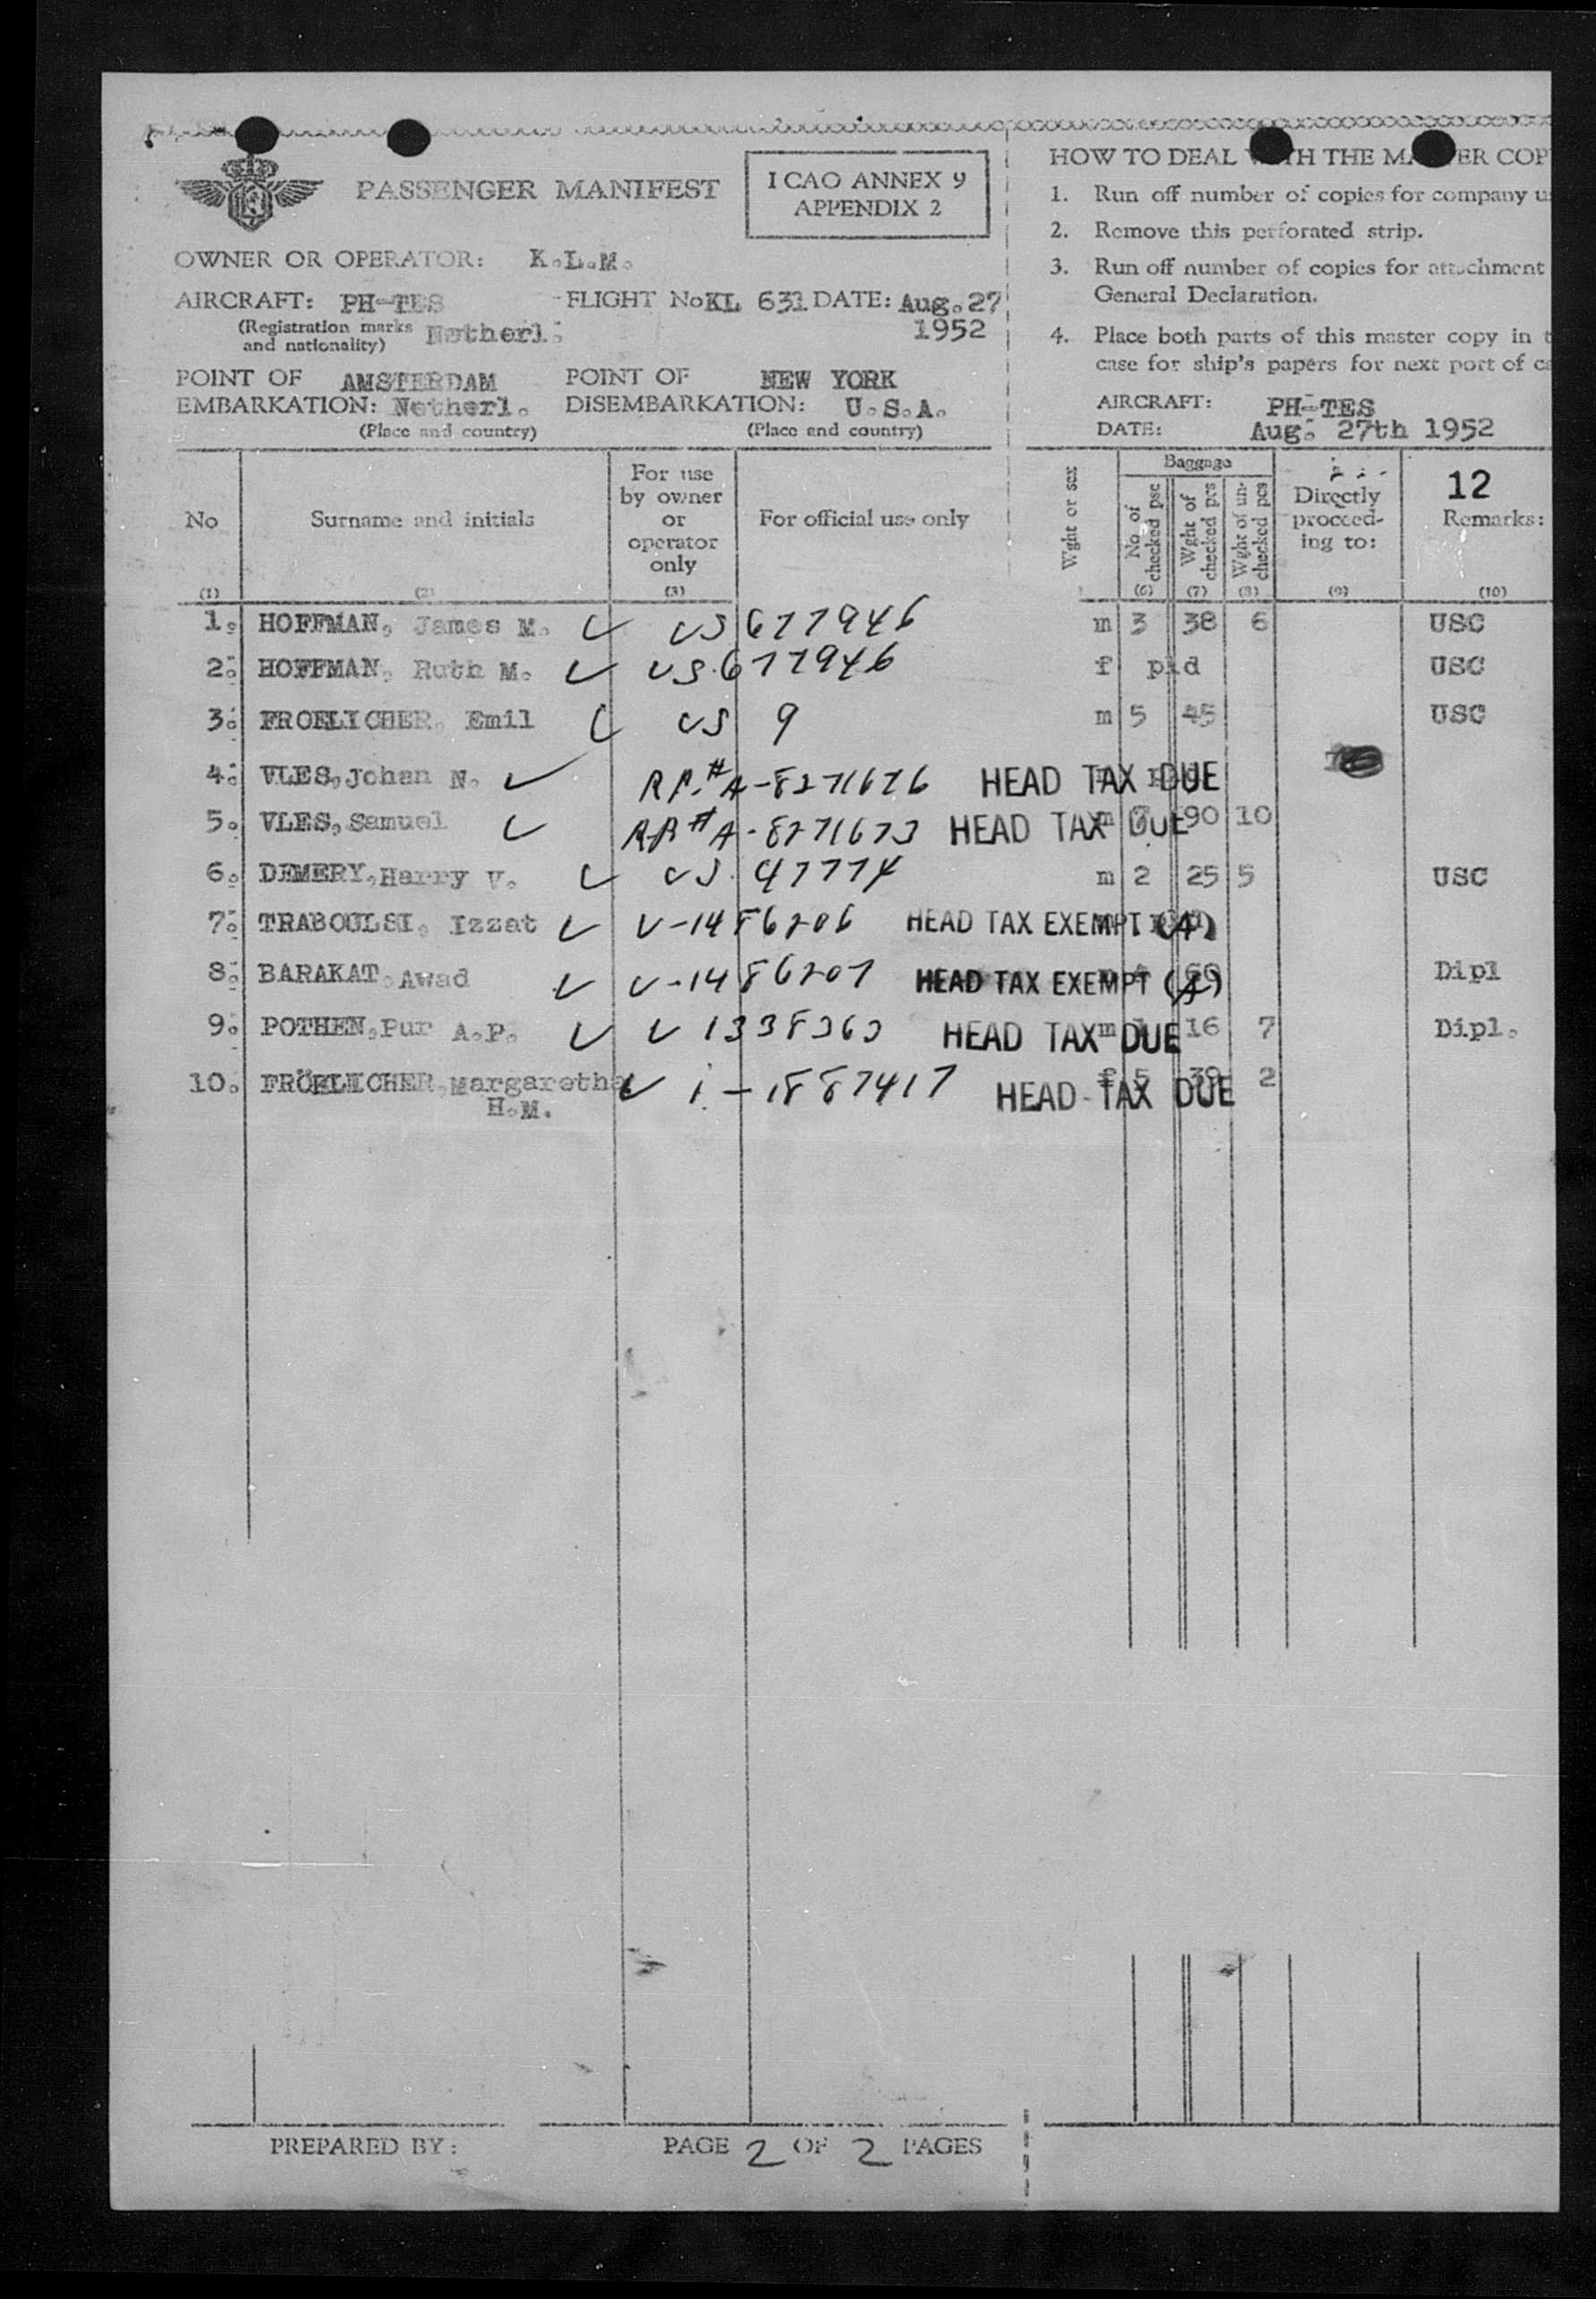 PASSENGER MANIFEST
I CAO ANNEX 9
APPENDIX 2
OWNER OR OPERATOR: K.L.M.
AIRCRAFT: PH-TES FLIGHT No KL 631 DATE: Aug. 27
(Registration marks and nationality) Netherl. 1952
POINT OF EMBARKATION: AMSTERDAM Netherl.
(Place and country)
POINT OF DISEMBARKATION: NEW YORK U.S.A.
(Place and country)
HOW TO DEAL THE COP
1. Run off number of copies for company
2. Remove this perforated strip.
3. Run off number of copies for attachment
General Declaration.
4. Place both parts of this master copy in
case for ship's papers for next port of
AIRCRAFT: PH-TES
DATE: Aug. 27th 1952
No (1)
Surname and initials (2)
For use by owner or operator only (3)
For official use only
Wght or sex
Baggage
No. of checked psc (6)
Wght of checked pcs (7)
Wght of un-checked pcs (8)
Directly proceed-ing to: (9)
12
Remarks: (10)
1. HOFFMAN, James M. US 677946 m 3 38 6 USC
2. HOFFMAN, Ruth M. US. 677946 f pld USC
3. FROELICHER, Emil US 9 m 5 45 USC
4. VLES, Johan N. A-8271676 HEAD TAX DUE
5. VLES, Samuel A-8271673 HEAD TAX DUE m 90 10
6. DEMERY, Harry V. US. 47774 m 2 25 5 USC
7. TRABOULSI, Izzat V-1486206 HEAD TAX EXEMPT (4)
8. BARAKAT, Awad V-1486207 HEAD TAX EXEMPT Dipl
9. POTHEN, Pur A.P. V 1338363 HEAD TAX DUE m 16 7 Dipl.
10. FRÖELICHER, Margaretha i-1887417 HEAD TAX DUE f 5 39 2
H.M.
PREPARED BY:
PAGE 2 OF 2 PAGES